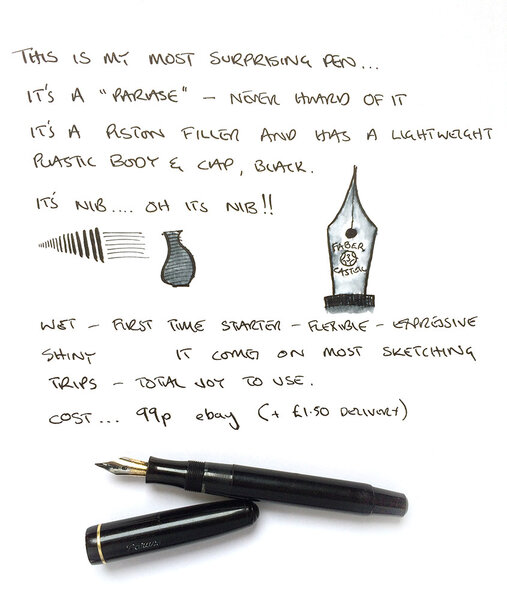 THIS IS MY MOST SURPRISING PEN...
IT'S A "PARASE" – NEVER HEARD OF IT
IT'S A PISTON FILLER AND HAS A LIGHTWEIGHT
PLASTIC BODY & CAP, BLACK.
IT'S NIB.... OH ITS NIB!!
FABER
CASTELL
WET – FIRST TIME STARTER – FLEXIBLE – EXPRESSIVE
SHINY IT COMES ON MOST SKETCHING
TRIPS – TOTAL JOY TO USE.
COST... 99p ebay (+ £1.50 DELIVERY)